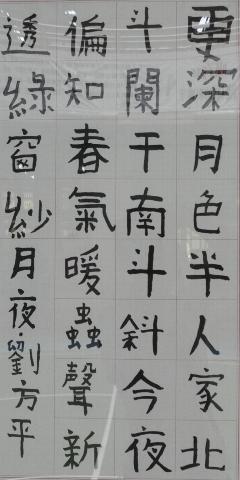 更深月色半人家北
斗闌干南斗斜今夜
偏知春氣暖蟲聲新
透綠窗紗月夜·劉方平